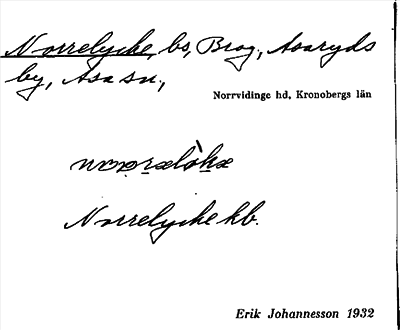 Norrelycke, bs, Brag, Asaryds
by, Asa sn.,
Norrvidinge hd, Kronobergs län
Norrelycke kb.
Erik Johannesson 1932